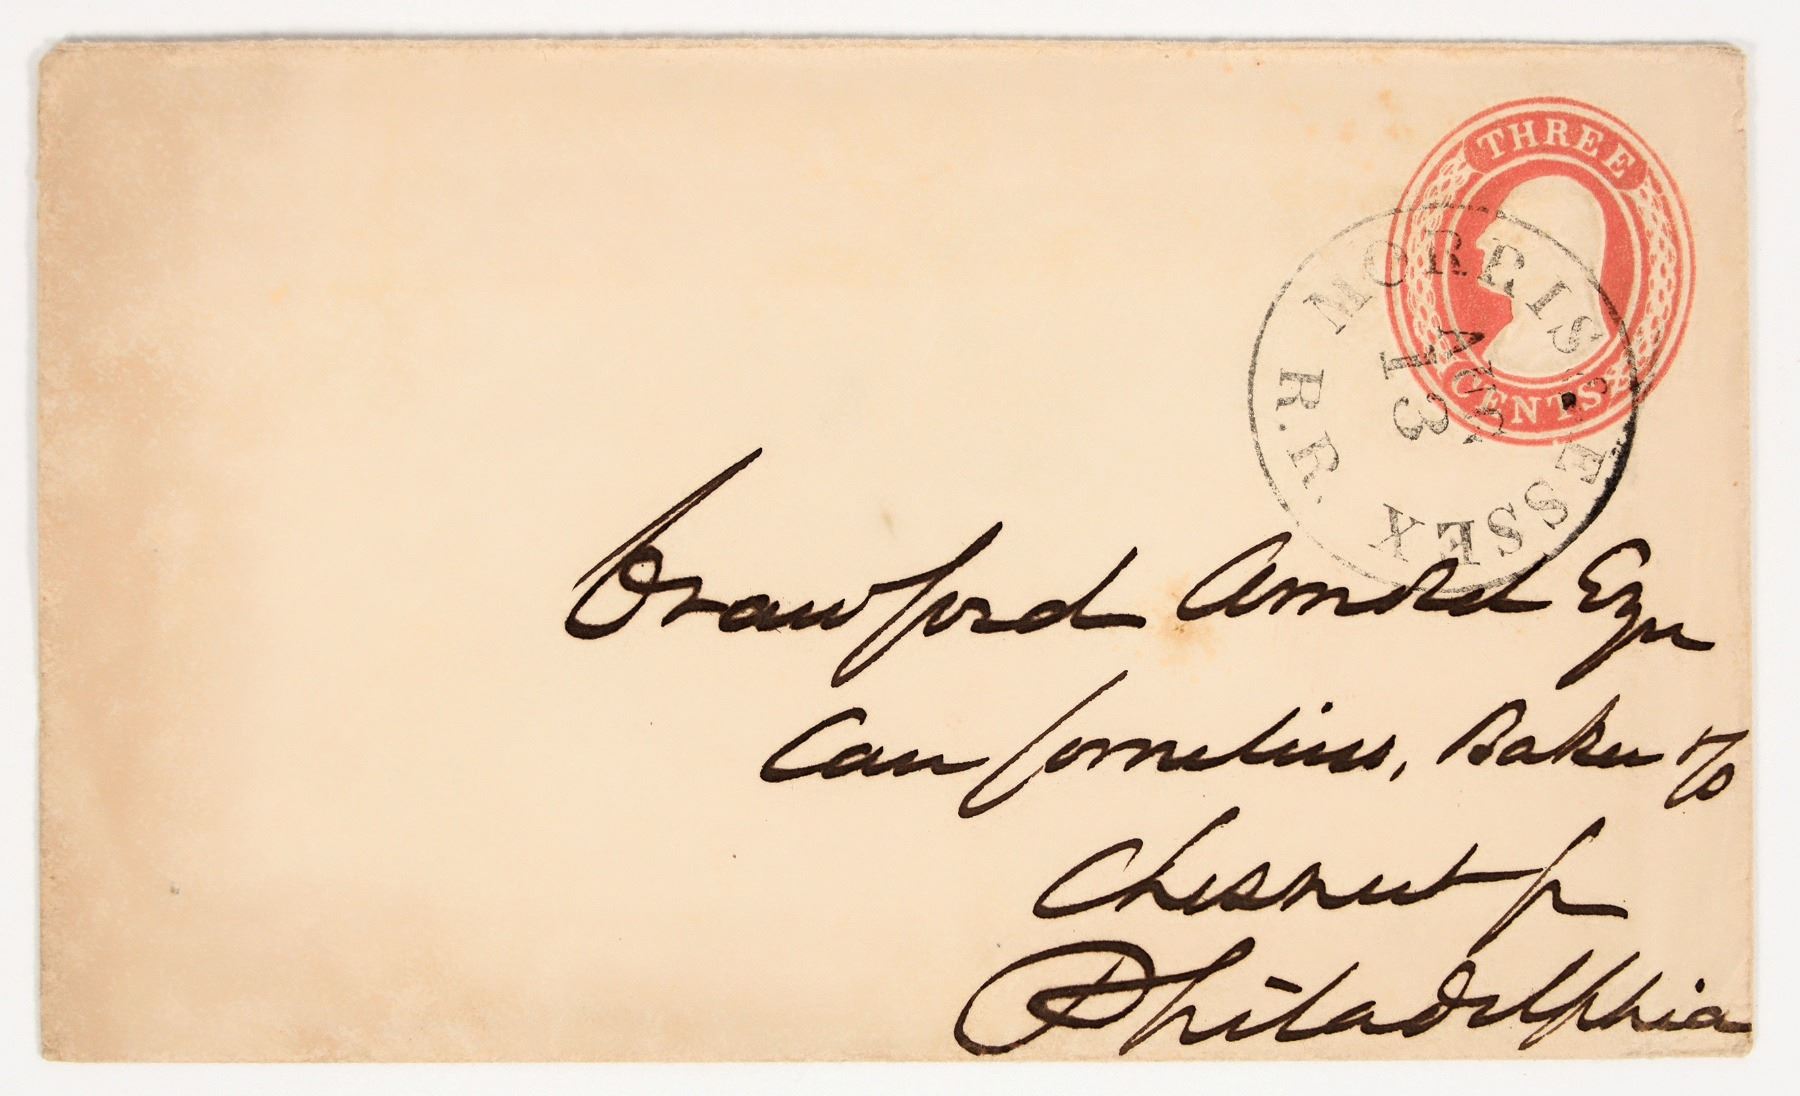 THREE
CENTS
MORRIS & ESSEX R.R.
AUG
13
Crawford Arnold Esqr
Care Cornelius, Baker & Co
Chesnut St
Philadelphia